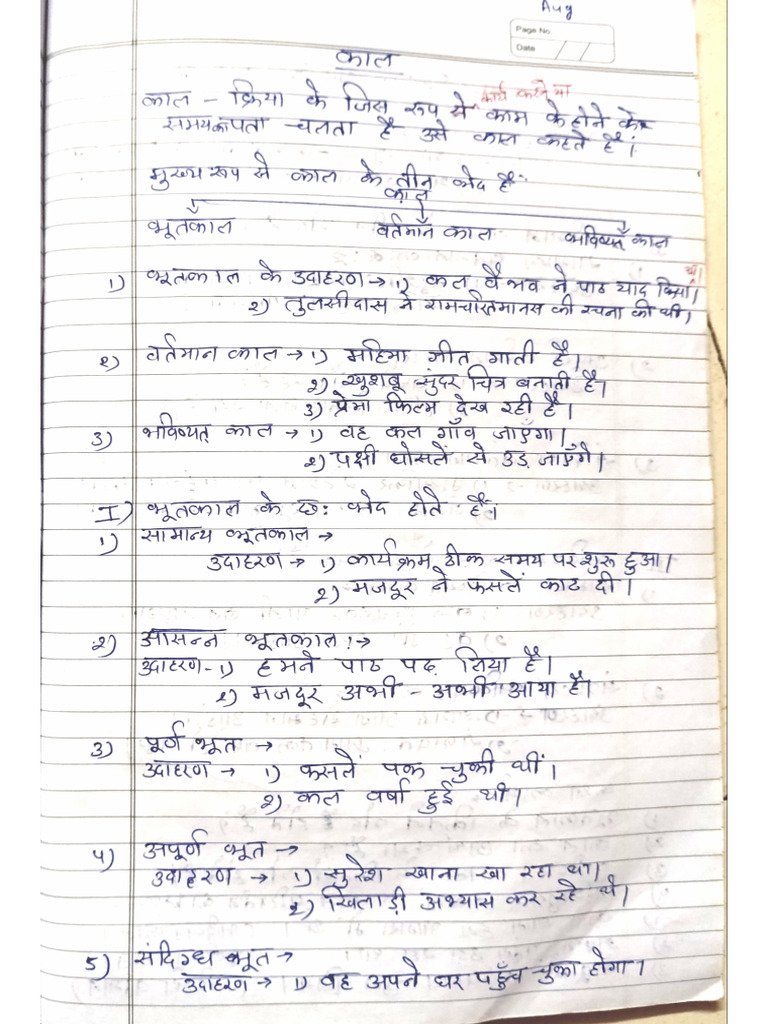 Aug
Page No
Date
काल
काल - क्रिया के जिस रूप से कार्य करने या काम के होने के
समय का पता चलता है उसे काल कहते हैं।
मुख्य रूप से काल के तीन भेद हैं:
काल
भूतकाल वर्तमान काल भविष्यत् काल
1) भूतकाल के उदाहरण → 1) कल वैभव ने पाठ याद किया था।
2) तुलसीदास ने रामचरितमानस की रचना की थी।
2) वर्तमान काल → 1) महिमा गीत गाती है।
2) खुशबू सुंदर चित्र बनाती है।
3) प्रेमा फिल्म देख रही है।
3) भविष्यत् काल → 1) वह कल गाँव जाएगा।
2) पक्षी घोसलें से उड़ जाएँगे।
I) भूतकाल के छः भेद होते हैं।
1) सामान्य भूतकाल →
उदाहरण → 1) कार्यक्रम ठीक समय पर शुरू हुआ।
2) मजदूर ने फसलें काट दी।
2) आसन्न भूतकाल :→
उदाहरण - 1) हमने पाठ पढ़ लिया है।
2) मजदूर अभी - अभी आया है।
3) पूर्ण भूत →
उदाहरण → 1) फसलें पक चुकी थीं।
2) कल वर्षा हुई थी।
4) अपूर्ण भूत →
उदाहरण → 1) सुरेश खाना खा रहा था।
2) खिलाड़ी अभ्यास कर रहे थे।
5) संदिग्ध भूत →
उदाहरण → 1) वह अपने घर पहुँच चुका होगा।